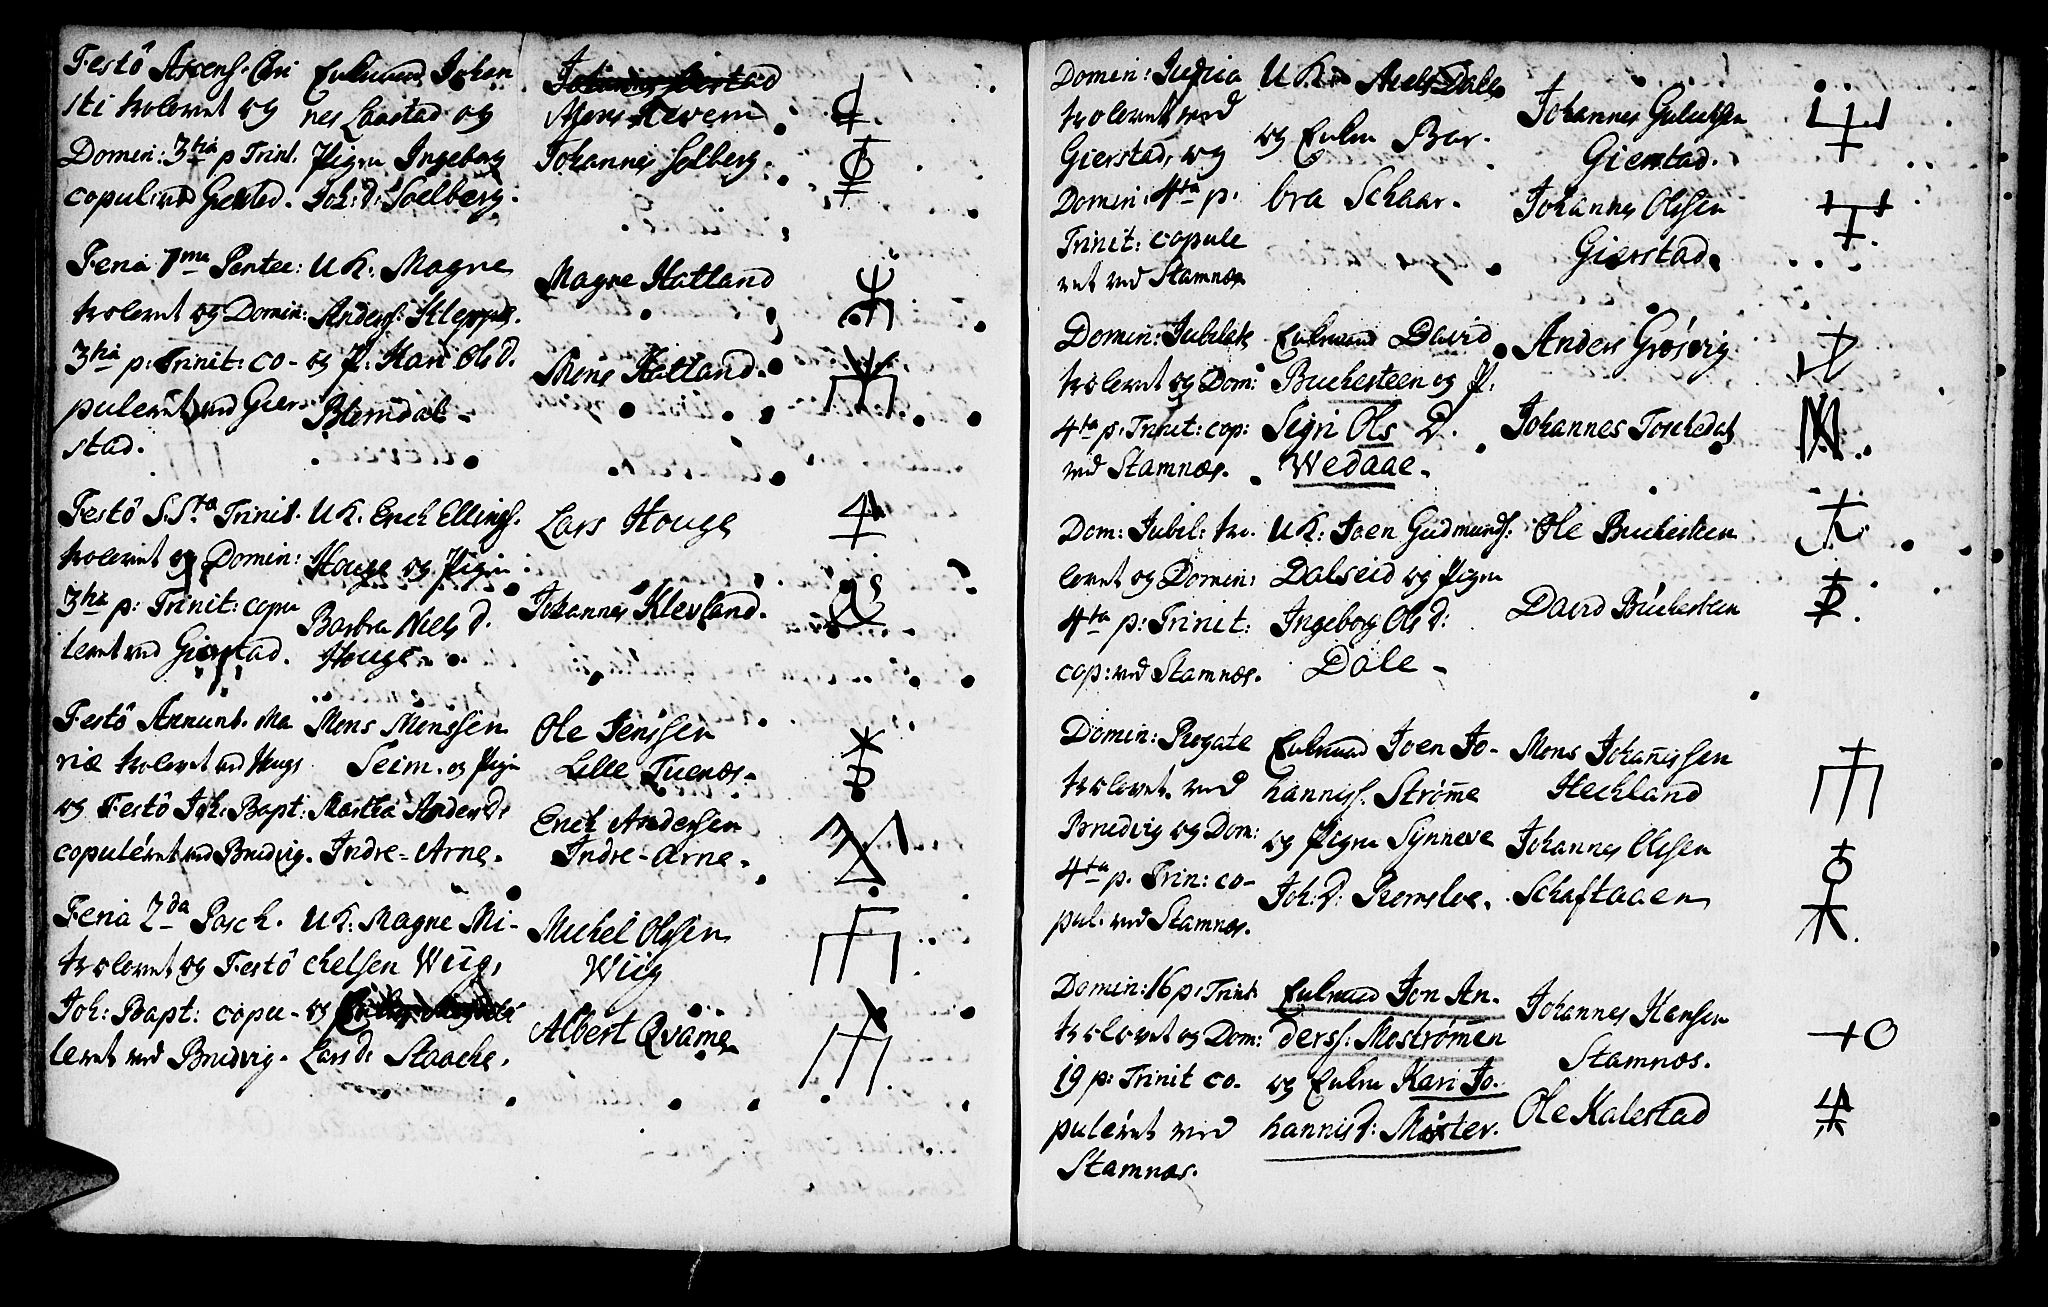 Festô Ascens. Chri
sti trolovet og
Domin: 3tia p Trinl.
copul: ved Gierstad.
Enkemand Johan
nes Laastad og
Pigen Ingeborg
Joh: d: Soelberg.
Johannes Solberg.
Feria 1ma Pentec:
trolovet og Domin:
3tia p: Trinit: co-
puleret ved Gier-
stad.
UK. Magne
Anders: Kleppe.
og P: Kari Ols d.
Blomdal -
Magne Hatland
Mons Hatland.
Festô S.Sta Trinit.
trolovet og Domin:
3tia p: Trinit: copu
leret ved Gierstad.
UK. Erich Ellings.
Houge og Pigen
Barbra Niels d.
Houge.
Lars Houge
Johannes Klevland.
Festô Annunt. Ma
riæ trolovet ved Hougs
og Festô Joh: Bapt:
copuleret ved Bredvig.
Mons Monssen
Seim. og Pigen
Martha Anders D:
Indre-Arne.
Ole Jenssen
Lille Tuenæs-
Erich Andersen
Indre-Arne-
Feria 2da Pasch.
trolovet og Festô
Joh: Bapt: copu-
leret ved Bredvig.
UK: Magne Mi-
chelsen Wiig,
og
Lars D: Staache.
Michel Olssen
Wiig
Albert Qvamen
Domin: Judica
trolovet ved
Gierstad, og
Domin: 4ta p.
Trinit: copule
ret ved Stamnæs
UK. Niels Dale
og Enken Bar-
bra Schaar.
Johannes Gulichsen
Gierstad.
Johannes Olssen
Gierstad.
Domin: Jubilate
trolovet og Dom:
4ta p: Trinit: cop:
ved Stamnæs.
Enkemand David
Buchesteen og P.
Sigri Ols D.
Wedaae.
Anders Grøsvig
Johannes Toschedal
Dom: Jubil: tro-
lovet og Domin:
4ta p: Trinit:
cop: ved Stamnæs.
UK: Joen Gudmunds:
Dalseid og Pigen
Ingeborg Ols D:
Dale -
Ole Buchesteen
David Buchesteen
Domin: Rogate
trolovet ved
Bredvig og Dom:
4ta p. Trin: co-
pul. ved Stamnæs.
Enkemand Joen Jo-
hanniss. Strøme
og Pigen Synneve
Joh: D: Romsloe.
Mons Johannissen
Hechland
Johannes Olssen
Schaftaaen
Domin: 16 p: Trinit
trolovet og Dom:
19 p: Trinit co-
puléret ved
Stamnæs.
Enkemand Jon An-
derss: Mostrømen
og Enken Kari Jo-
hannis D: Møster.
Johannes Hansen
Stamnæs.
Ole Kalestad